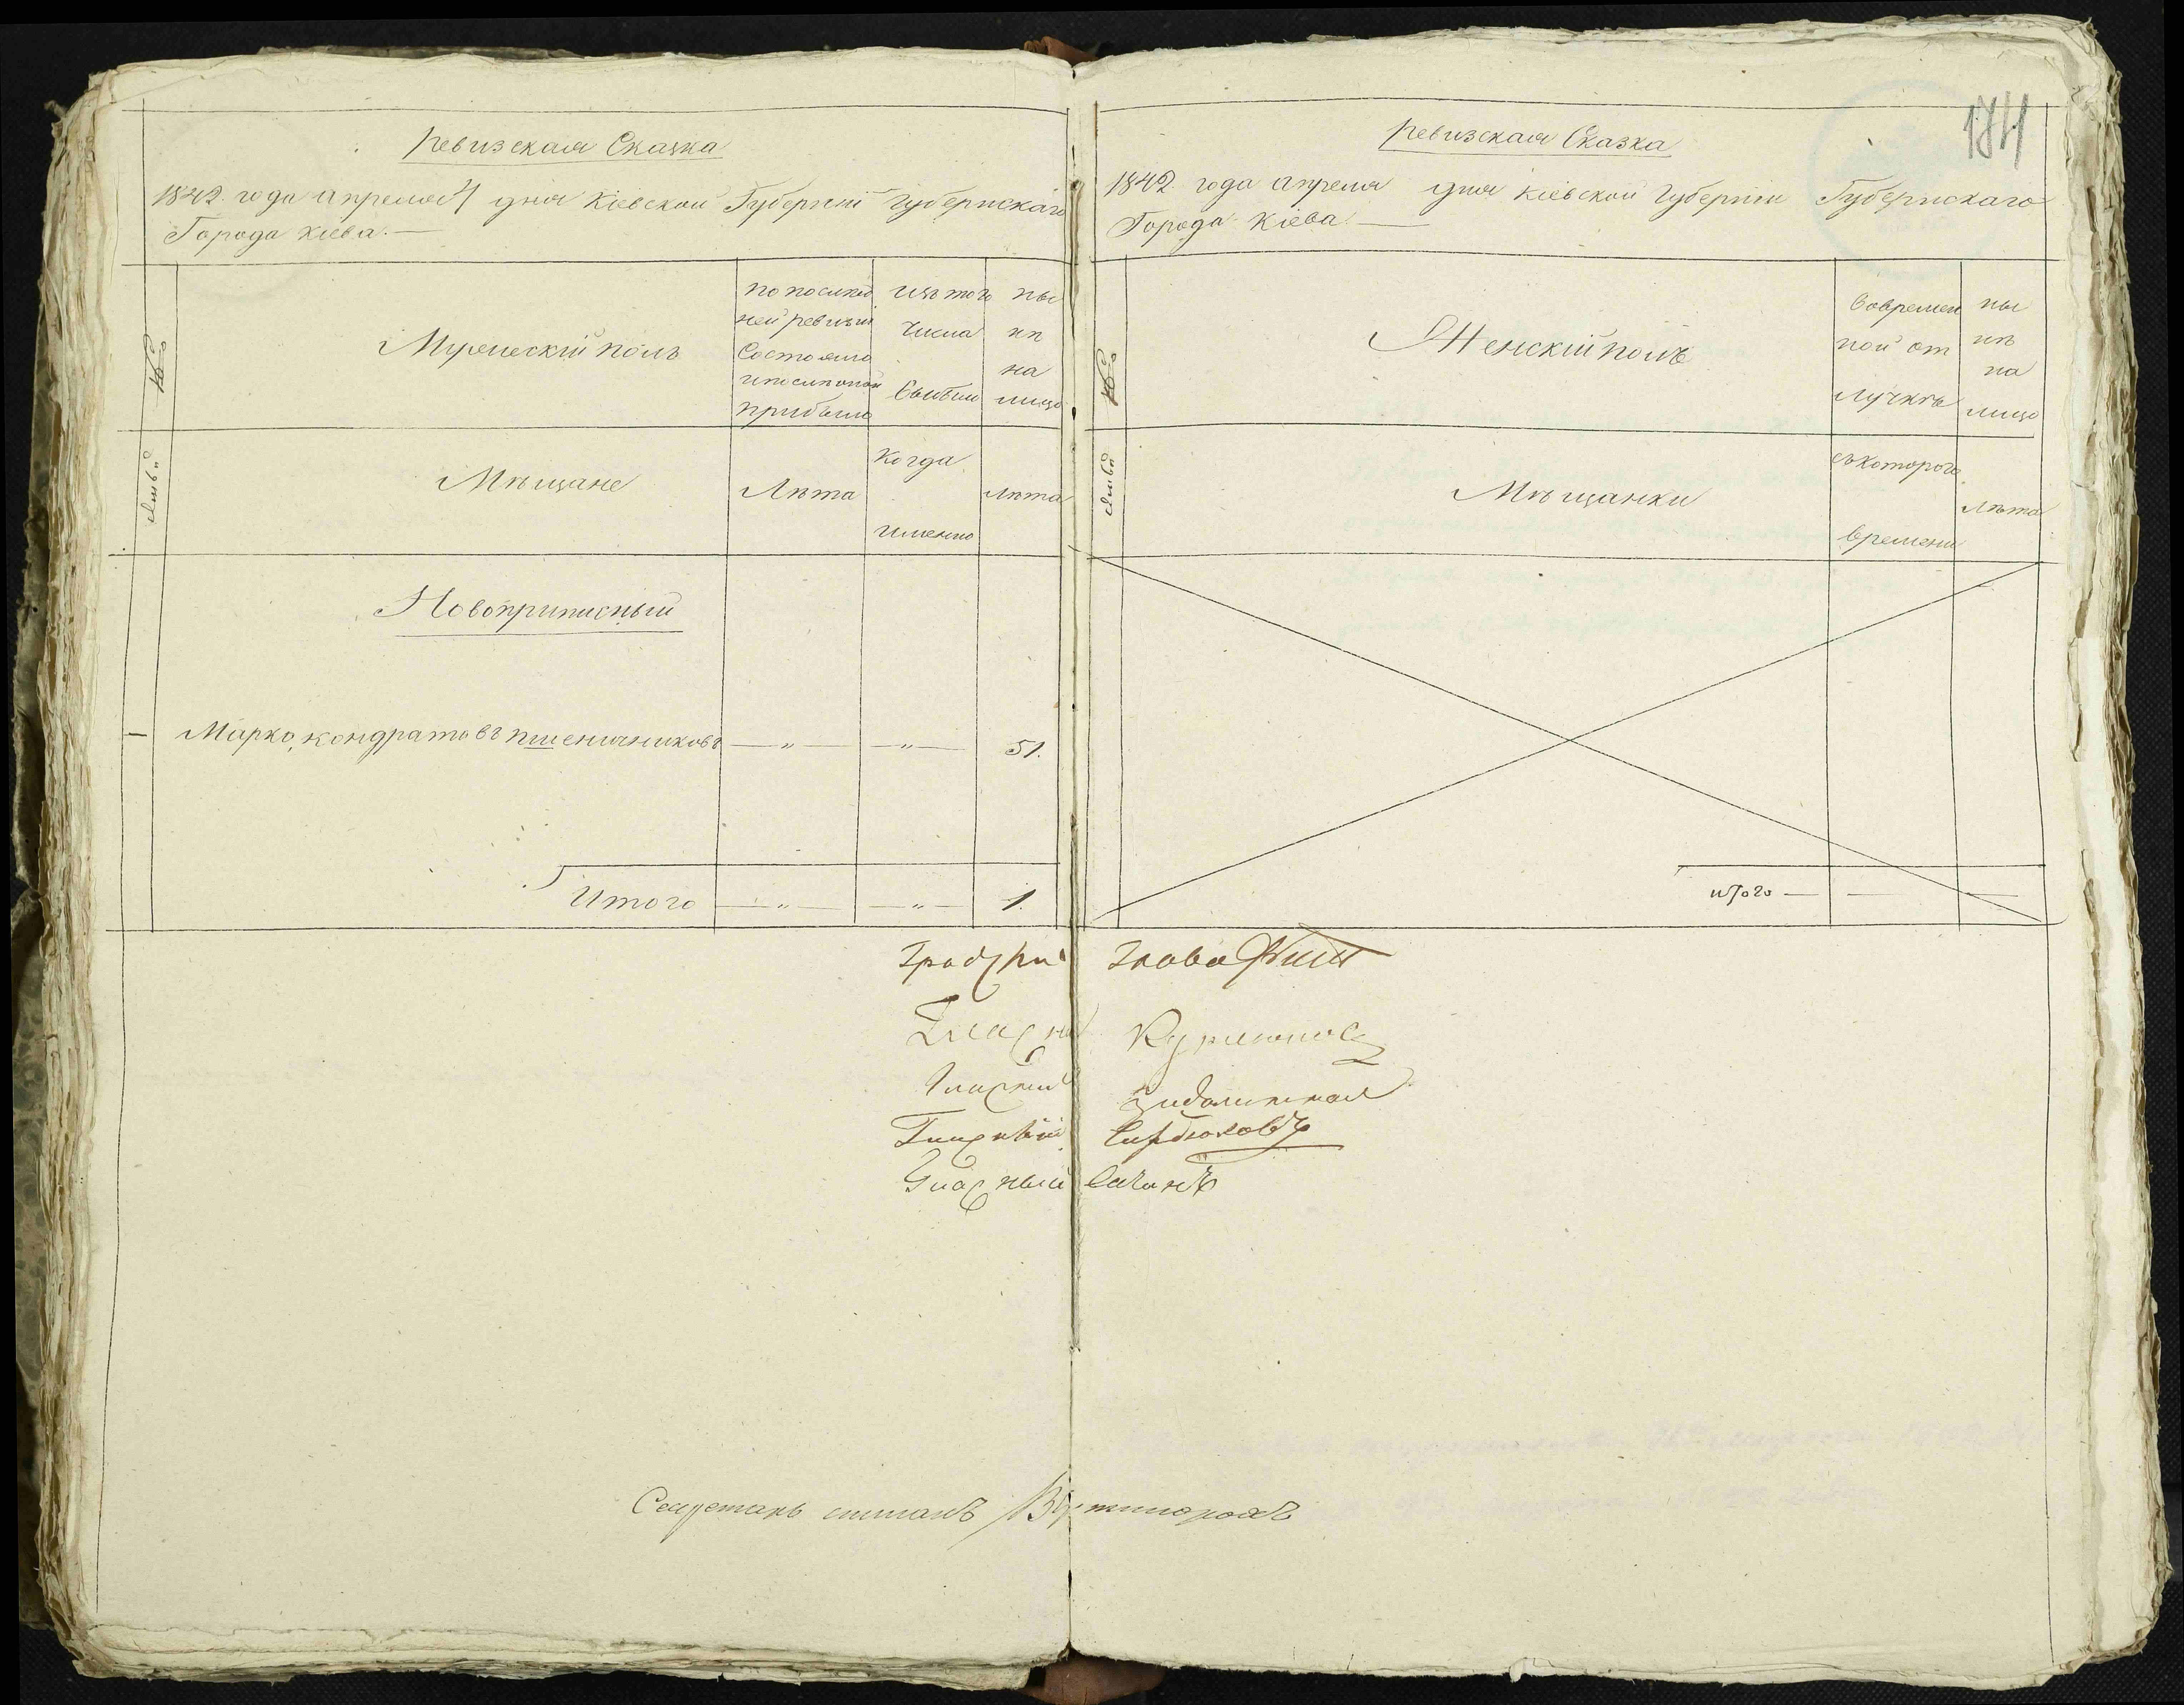 Ревизская Сказка
1842 года апреля 4 дня Кіевской Губерніи Губернскаго
Города Кіева.—
№
Мужескій полъ
по послед
ней ревизіи
состояло
и после оной
прибыло
изъ того
числа
выбыло
ны
нѣ
на
лицо
семьи
Мѣщане
Лѣта
когда
именно
Лѣта
Новоприписный
1 Марко, кондратовъ пшеничниковъ — " — — " — 51.
Итого — " — — " — 1.
184
Ревизская Сказка
1842 года апреля дня Кіевской Губерніи Губернскаго
Города Кіева —
№
Женскій полъ
вовремен
ной от
лучкѣ
ны
нѣ
на
лицо
семьи
Мѣщанки
съкотораго
времени
Лѣта
итого — — —
Градскій Глава
Гласный
Гласный
Гласный Сердюковъ
Гласный
Секретарь